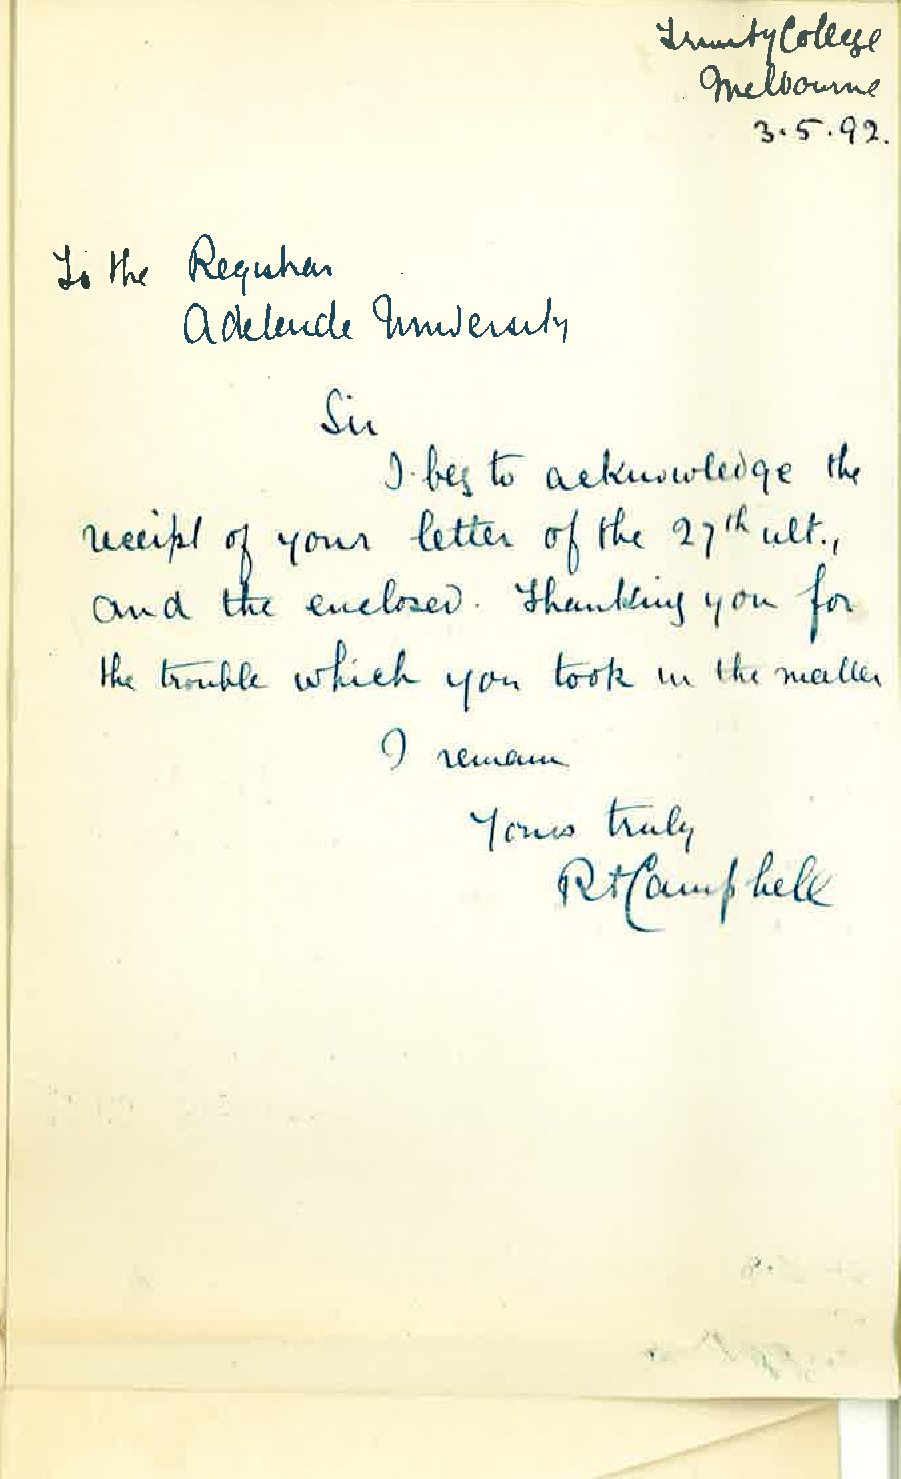 Trinity College
Melbourne
3.5.92.
To the Registrar
Adelaide University
Sir
I beg to acknowledge the
receipt of your letter of the 27th ult.,
and the enclosed. Thanking you for
the trouble which you took in the matter
I remain
Yours truly
Campbell